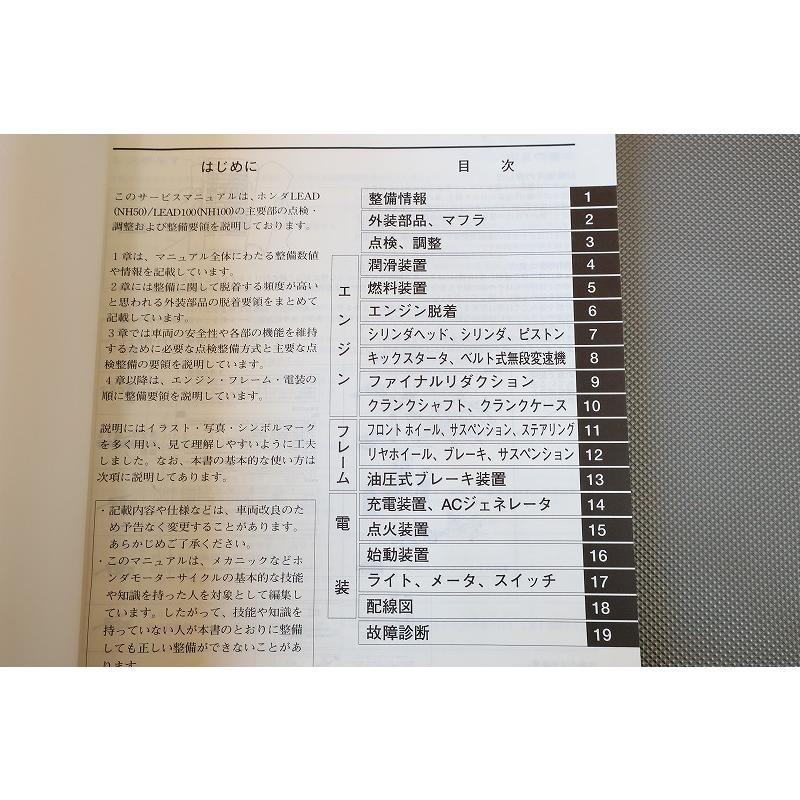 はじめに
このサービスマニュアルは、ホンダLEAD
(NH50)/LEAD100(NH100)の主要部の点検・
調整および整備要領を説明しております。
1章は、マニュアル全体にわたる整備数値
や情報を記載しています。
2章には整備に関して脱着する頻度が高い
と思われる外装部品の脱着要領をまとめて
記載しています。
3章では車両の安全性や各部の機能を維持
するために必要な点検整備方式と主要な点
検整備の要領を説明しています。
4章以降は、エンジン・フレーム・電装の
順に整備要領を説明しています。
説明にはイラスト・写真・シンボルマーク
を多く用い、見て理解しやすいように工夫
しました。なお、本書の基本的な使い方は
次項に説明してあります。
・記載内容や仕様などは、車両改良のた
め予告なく変更することがあります。
あらかじめご了承ください。
・このマニュアルは、メカニックなどホ
ンダモーターサイクルの基本的な技能
や知識を持った人を対象として編集し
ています。したがって、技能や知識を
持っていない人が本書のとおりに整備
しても正しい整備ができないことがあ
ります。
目 次
整備情報 1
外装部品、マフラ 2
点検、調整 3
エンジン
潤滑装置 4
燃料装置 5
エンジン脱着 6
シリンダヘッド、シリンダ、ピストン 7
キックスタータ、ベルト式無段変速機 8
ファイナルリダクション 9
クランクシャフト、クランクケース 10
フレーム
フロントホイール、サスペンション、ステアリング 11
リヤホイール、ブレーキ、サスペンション 12
油圧式ブレーキ装置 13
電装
充電装置、ACジェネレータ 14
点火装置 15
始動装置 16
ライト、メータ、スイッチ 17
配線図 18
故障診断 19